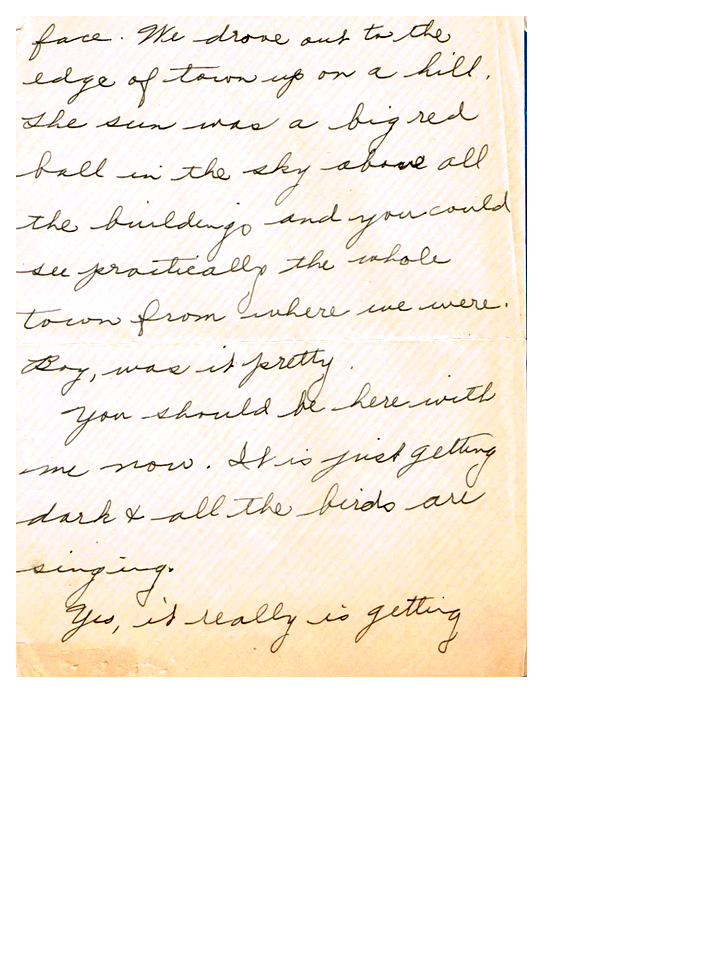 face. We drove out to the
edge of town up on a hill.
The sun was a big red
ball in the sky above all
the buildings and you could
see practically the whole
town from where we were.
Boy, was it pretty.
You should be here with
me now. It is just getting
dark & all the birds are
singing.
Yes, it really is getting